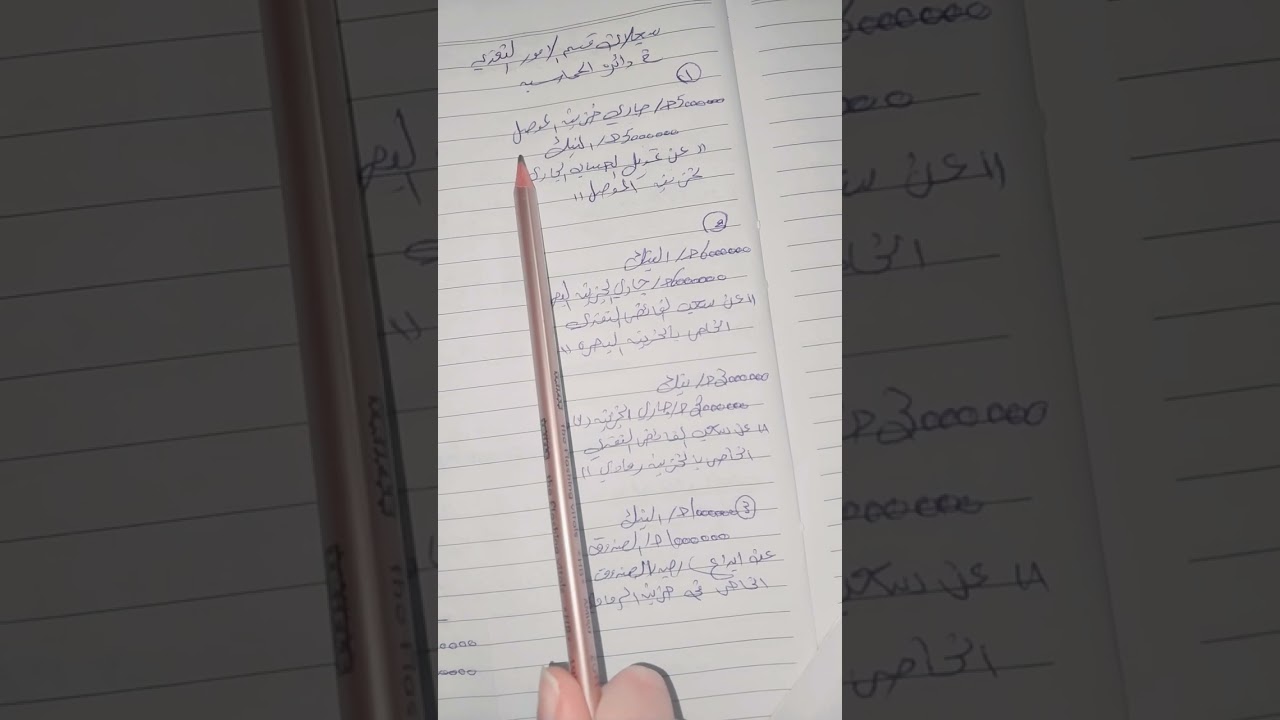 سجلات قسم الامور النقدي
في دائرة المحاسبة
①
5000000 حـ/ جاري خزينة الموصل
5000000 حـ/ البنك
"عن تمويل الحساب الجاري
لخزينة الموصل"
②
6000000 حـ/ البنك
6000000 حـ/ جاري الخزينة البصر
"عن سحب الفائض النقدي
الخاص بالخزينة البصره"
3000000 حـ/ بنك
3000000 حـ/ جاري الخزينة
"عن سحب الفائض النقدي
الخاص بالخزينة رمادي"
③ 1000000 حـ/ البنك
1000000 حـ/ الصندوق
عند ايداع رصيد الصندوق
الخاص في خزينة الرمادي